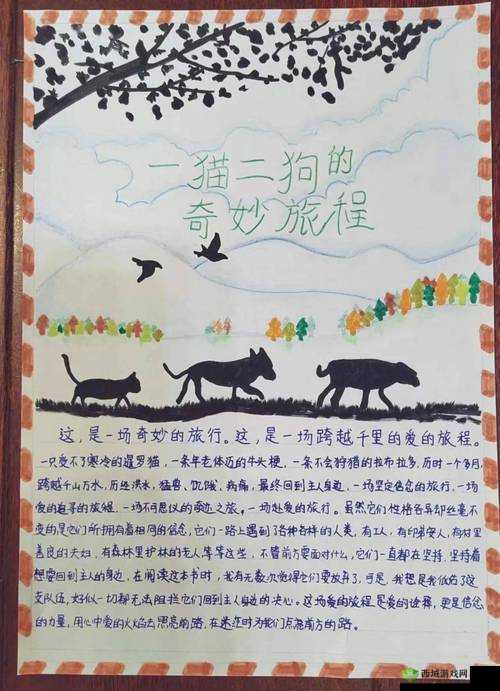 一猫二狗的
奇妙旅程
这,是一场奇妙的旅行。这,是一场跨越千里的爱的旅程。
一只受不了寒冷的暹罗猫,一条年老体迈的牛头梗,一条不会狩猎的拉布拉多,历时一个多月,
跨越千山万水,历经洪水,猛兽、饥饿、病痛,最终回到主人身边,一场坚定信念的旅行,一场
爱的追寻的旅程,一场不思议的奇迹之旅。一场赴爱的旅行。虽然它们性格各异却丝毫不
变的是它们所拥有着相同的信念,它们一路上遇到了各种各样的人类,有工人,有印第安人,有村里
善良的夫妇,有森林里护林的老人等等这些,不管前方要面对什么,它们一直都在坚持,坚持着
想要回到主人的身边,在阅读这本书时,我有无数次觉得它们要放弃了,可是,我想是我低估了这
支队伍,好似一切都无法阻拦它们回到主人身边的决心。这场爱的旅程是爱的诠释,更是信念
的力量,用心中爱的火焰去照亮前路,在迷茫时为我们点亮前方的路。
西域游戏网